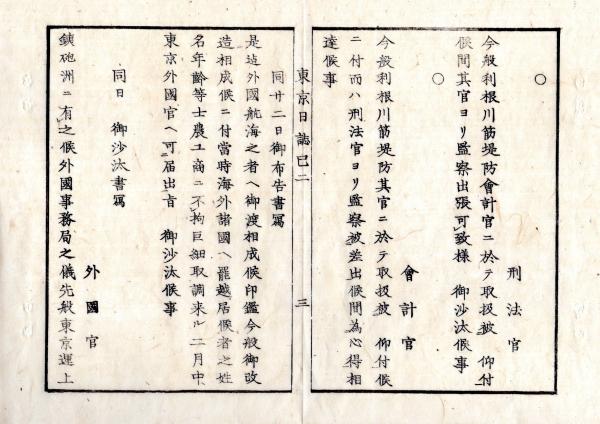 ○
刑法官
今般利根川筋堤防會計官ニ於テ取扱被　仰付
候間其官ヨリ監察出張可致様　御沙汰候事
○
會計官
今般利根川筋堤防其官ニ於テ取扱被　仰付候
ニ付而ハ刑法官ヨリ監察被差出候間為心得相
達候事
東京日誌巳二　三
同廿二日御布告書寫
是迠外國航海之者ヘ御渡相成候印鑑今般御改
造相成候ニ付當時海外諸國ヘ罷越居候者之姓
名年齢等士農工商ニ不拘巨細取調来ル二月中
東京外國官ヘ可届出旨　御沙汰候事
同日　御沙汰書寫
外國官
鉄砲洲ニ有之候外國事務局之儀先般東京運上